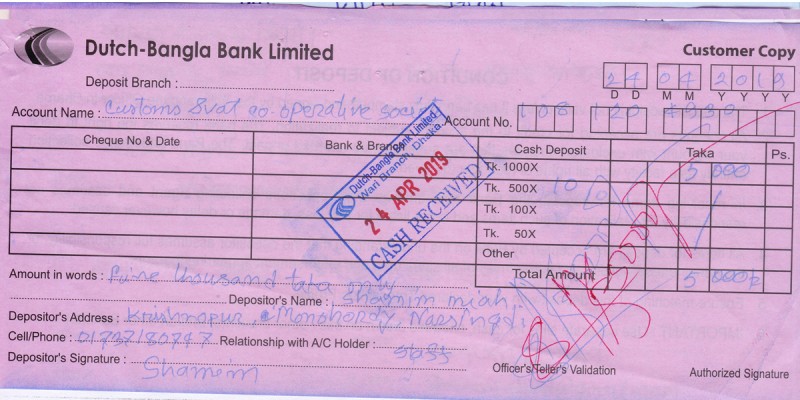 Dutch-Bangla Bank Limited
Customer Copy
Deposit Branch :
24 04 2019
D D M M Y Y Y Y
Account Name : Customs Svat co-operative societ
Account No. 108 120
Cheque No & Date Bank & Branch Cash: Deposit Taka Ps.
Tk. 1000X 5 000
Tk. 500X 10
Tk. 100X
Tk. 50X
Other
Total Amount 5 000
Dutch-Bangla Bank Limited
Wari Branch, Dhaka
24 APR 2019
CASH RECEIVED
Amount in words : five thousand taka only
Depositor's Name : Shamim miah
Depositor's Address : Krishnapur, Monohordy, Narsingdi
Cell/Phone : Relationship with A/C Holder :
Depositor's Signature : Shamim
Officer's/Teller's Validation
Authorized Signature